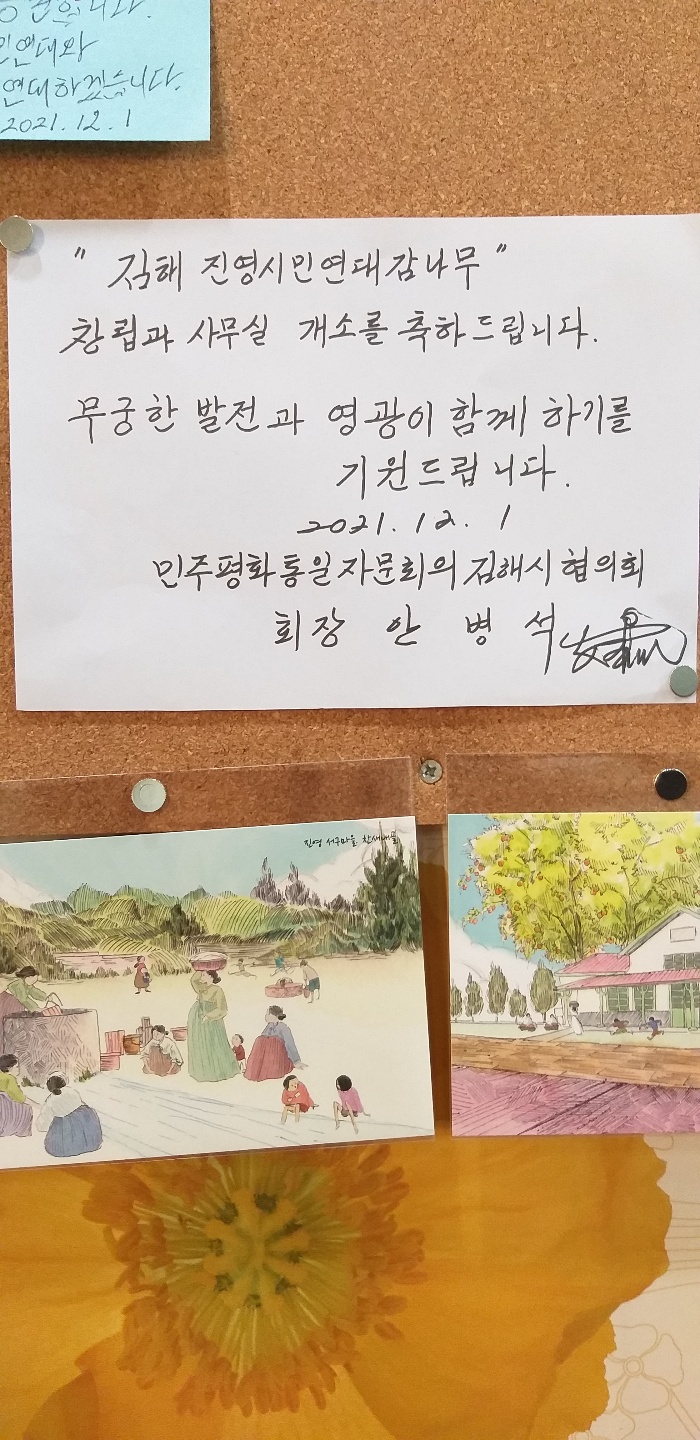 연대와
연대하겠습니다.
2021.12.1
" 김해 진영시민연대감나무 "
창립과 사무실 개소를 축하드립니다.
무궁한 발전과 영광이 함께 하기를
기원드립니다.
2021. 12. 1
민주평화통일자문회의 김해시협의회
회장 안 병 석
진영 서구마을 찬새내골